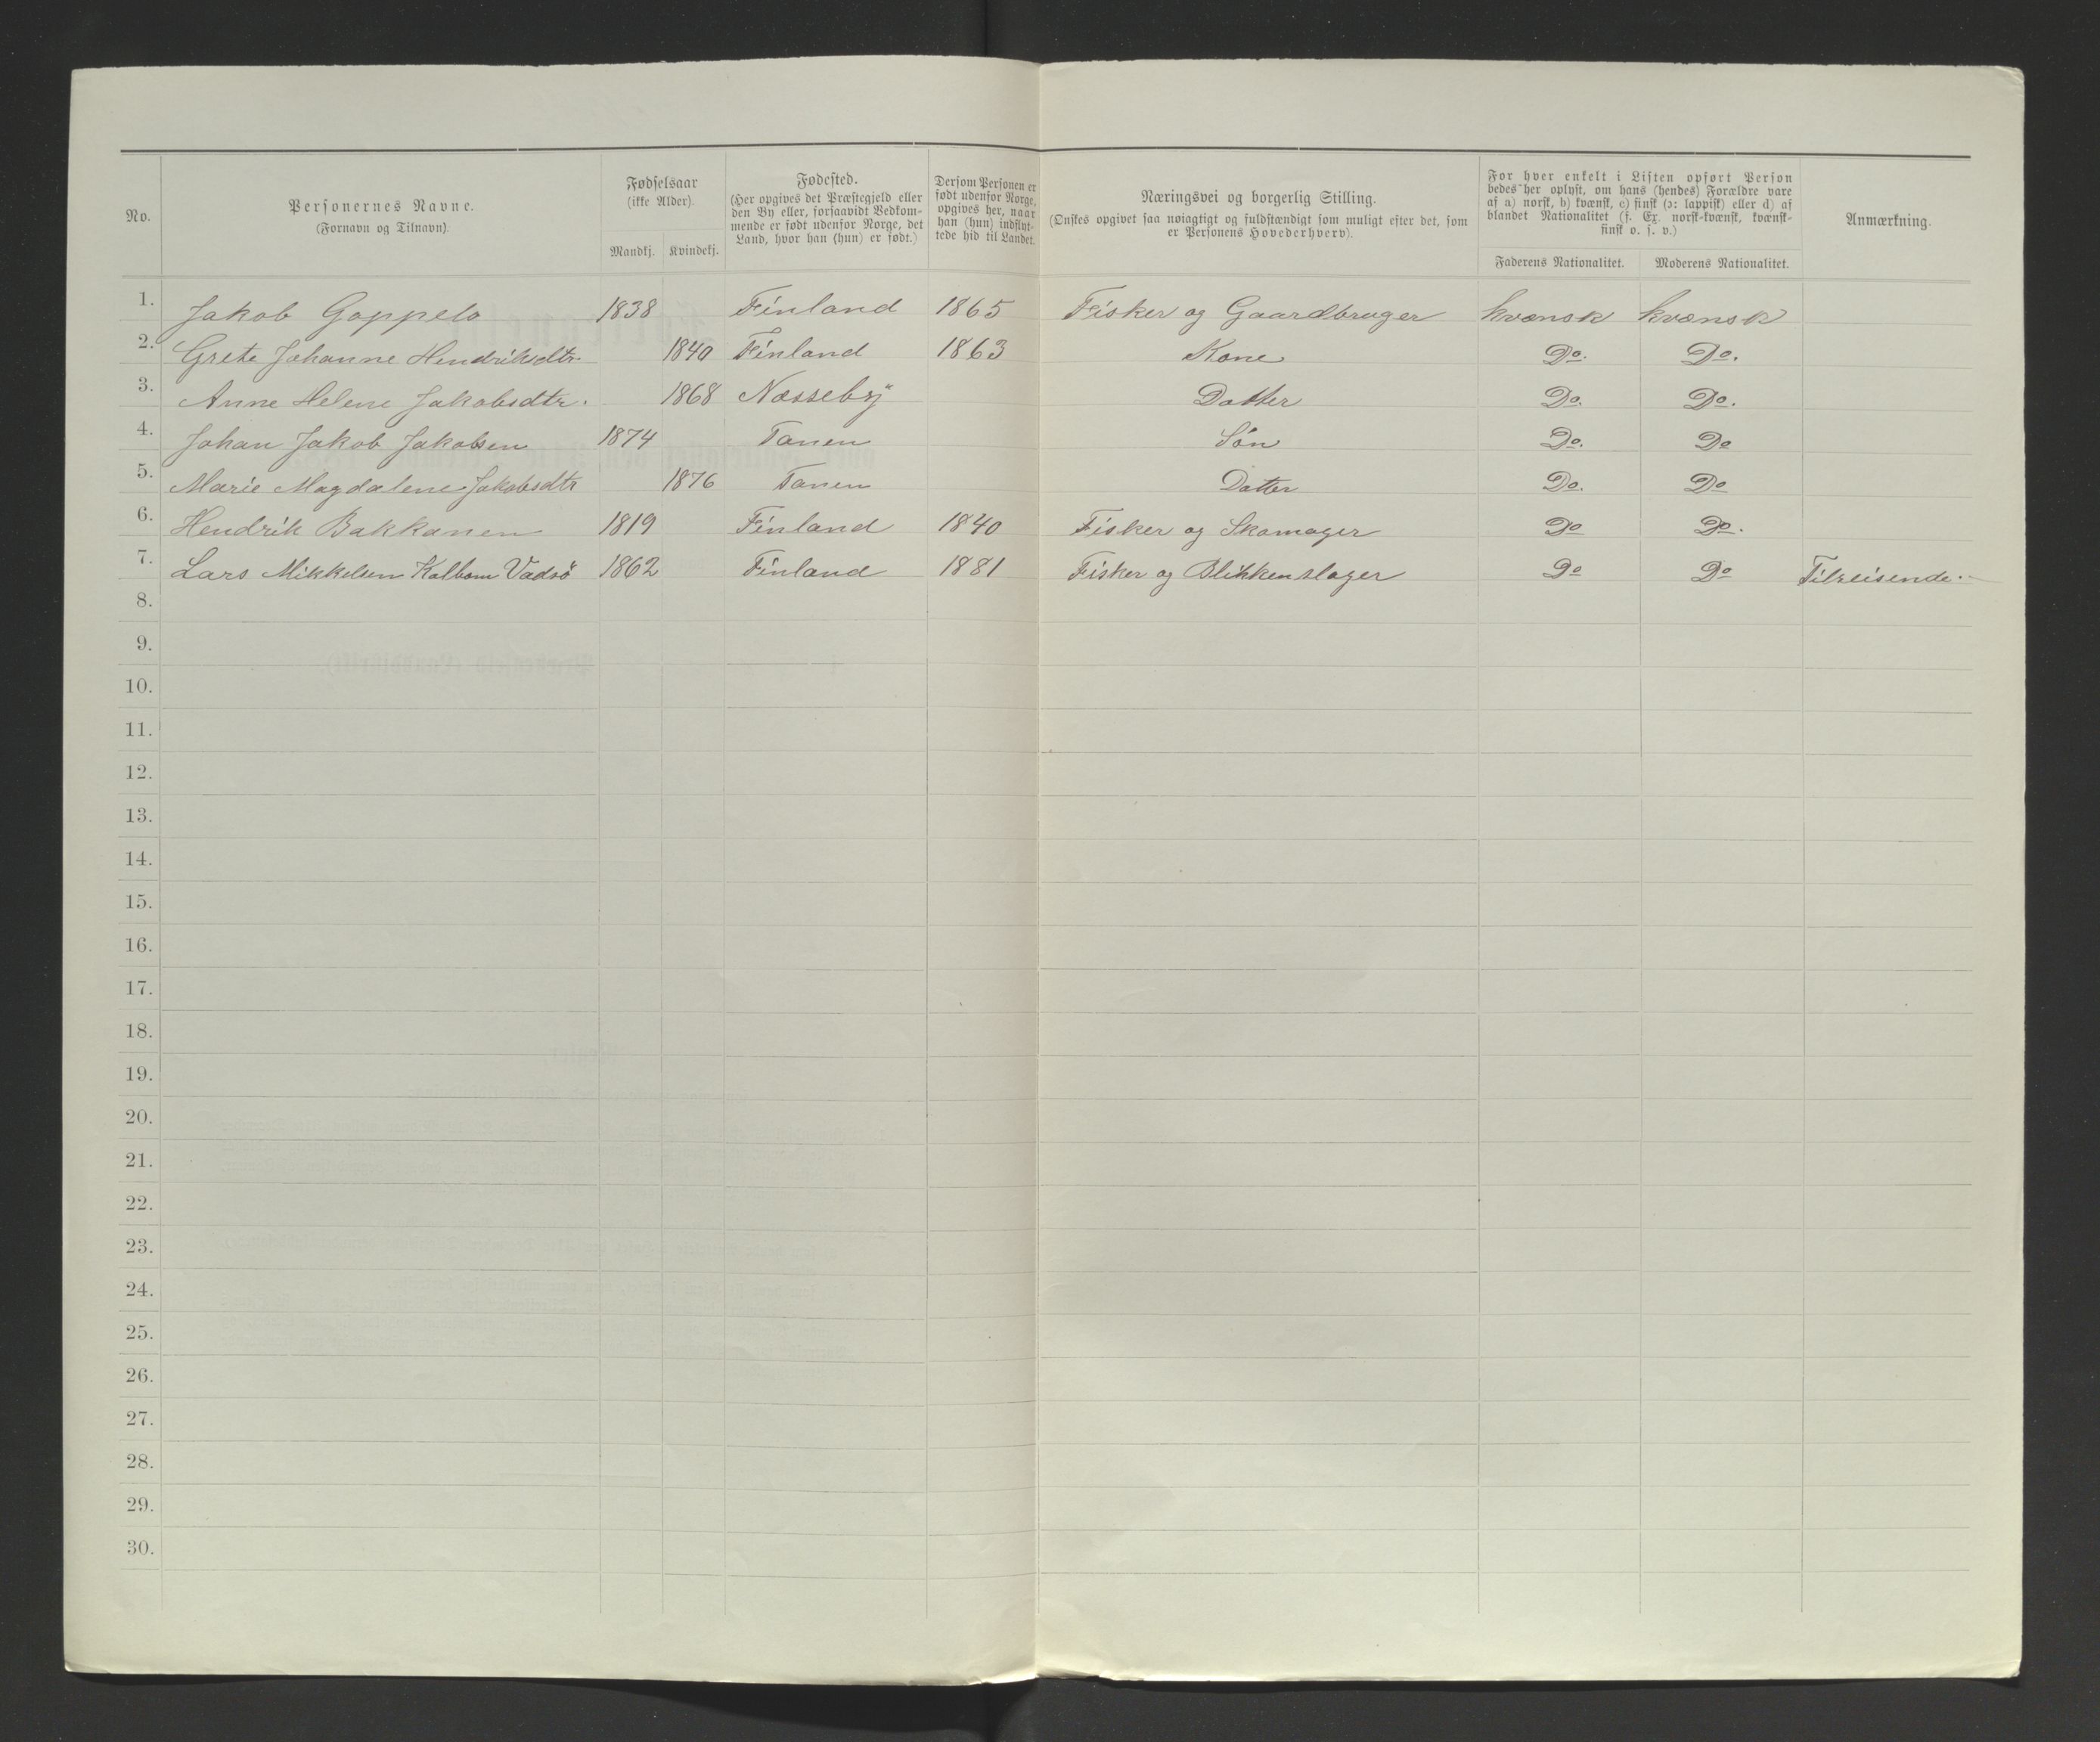 No.
Personernes Navne.
(Fornavn og Tilnavn).
Fødselsaar
(ikke Alder).
Mandkj. Kvindekj.
Fødested.
(Her opgives det Præstegjeld eller
den By eller, forsaavidt Vedkom-
mende er født udenfor Norge, det
Land, hvor han (hun) er født.)
Dersom Personen er
født udenfor Norge,
opgives her, naar
han (hun) indflyt-
tede hid til Landet.
Næringsvei og borgerlig Stilling.
(Ønskes opgivet saa nøiagtigt og fuldstændigt som muligt efter det, som
er Personens Hovederhverv).
For hver enkelt i Listen opført Person
bedes her oplyst, om hans (hendes) Forældre vare
af a) norsk, b) kvænsk, c) finsk (ɔ: lappisk) eller d) af
blandet Nationalitet (f. Ex. norsk-kvænsk, kvænsk-
finsk o. s. v.)
Faderens Nationalitet. Moderens Nationalitet.
Anmærkning.
1. Jakob Goppelo 1838 Finland 1865 Fisker og Gaardbruger kvænsk kvænsk
2. Grete Johanne Hendriksdtr. 1840 Finland 1863 Kone Do. Do.
3. Anne Helene Jakobsdtr. 1868 Næsseby Datter Do. Do.
4. Johan Jakob Jakobsen 1874 Tanen Søn Do. Do
5. Marie Magdalene Jakobsdtr 1876 Tanen Datter Do. Do
6. Hendrik Bakkanen 1819 Finland 1840 Fisker og Skomager Do Do.
7. Lars Mikkelsen Kalbom Vadsö 1862 Finland 1881 Fisker og Blikkenslager Do Do Tilreisende.
8.
9.
10.
11.
12.
13.
14.
15.
16.
17.
18.
19.
20.
21.
22.
23.
24.
25.
26.
27.
28.
29.
30.